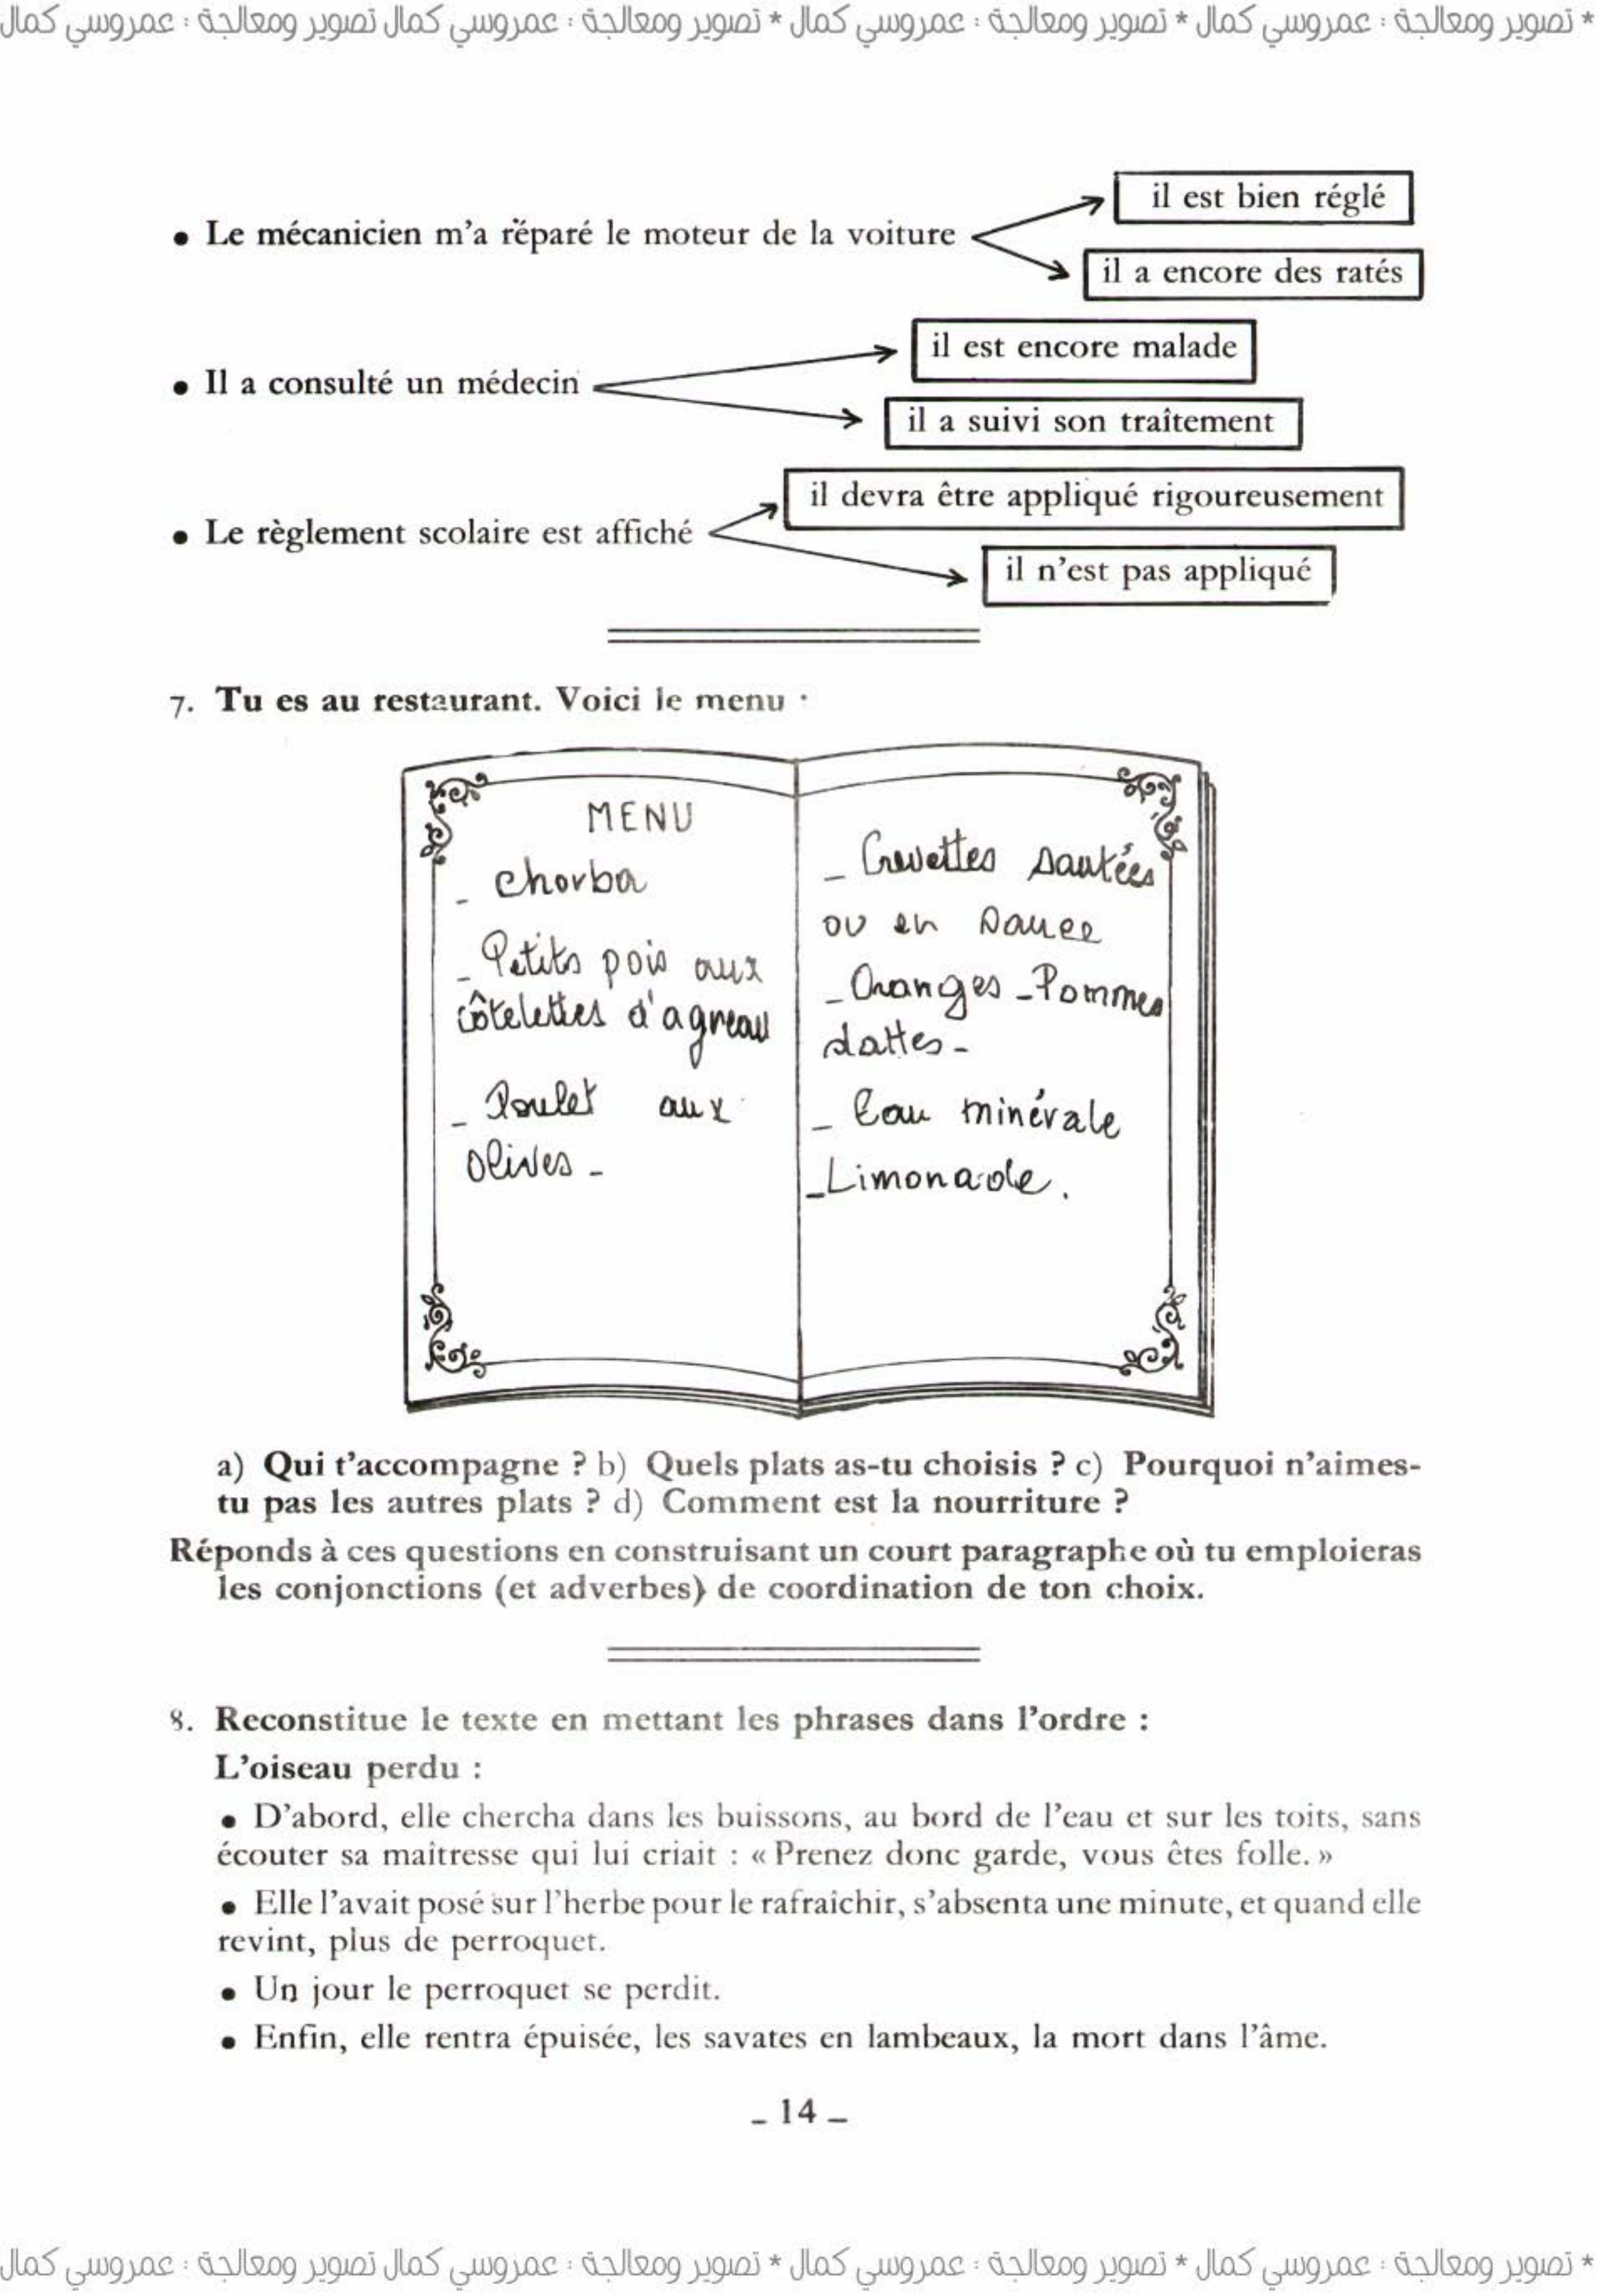 * تصوير ومعالجة : عمروسي كمال * تصوير ومعالجة : عمروسي كمال * تصوير ومعالجة : عمروسي كمال تصوير ومعالجة : عمروسي كمال
il est bien réglé
• Le mécanicien m'a réparé le moteur de la voiture
il a encore des ratés
il est encore malade
• Il a consulté un médecin
il a suivi son traîtement
il devra être appliqué rigoureusement
• Le règlement scolaire est affiché
il n'est pas appliqué
7. Tu es au restaurant. Voici le menu :
MENU
- Chorba
- Petits pois aux
côtelettes d'agneau
- Poulet aux
olives -
- Crevettes sautées
ou en sauce
- Oranges - Pommes
dattes -
- Eau minérale
- Limonade.
a) Qui t'accompagne ? b) Quels plats as-tu choisis ? c) Pourquoi n'aimes-
tu pas les autres plats ? d) Comment est la nourriture ?
Réponds à ces questions en construisant un court paragraphe où tu emploieras
les conjonctions (et adverbes) de coordination de ton choix.
8. Reconstitue le texte en mettant les phrases dans l'ordre :
L'oiseau perdu :
• D'abord, elle chercha dans les buissons, au bord de l'eau et sur les toits, sans
écouter sa maîtresse qui lui criait : « Prenez donc garde, vous êtes folle. »
• Elle l'avait posé sur l'herbe pour le rafraîchir, s'absenta une minute, et quand elle
revint, plus de perroquet.
• Un jour le perroquet se perdit.
• Enfin, elle rentra épuisée, les savates en lambeaux, la mort dans l'âme.
- 14 -
* تصوير ومعالجة : عمروسي كمال * تصوير ومعالجة : عمروسي كمال * تصوير ومعالجة : عمروسي كمال تصوير ومعالجة : عمروسي كمال